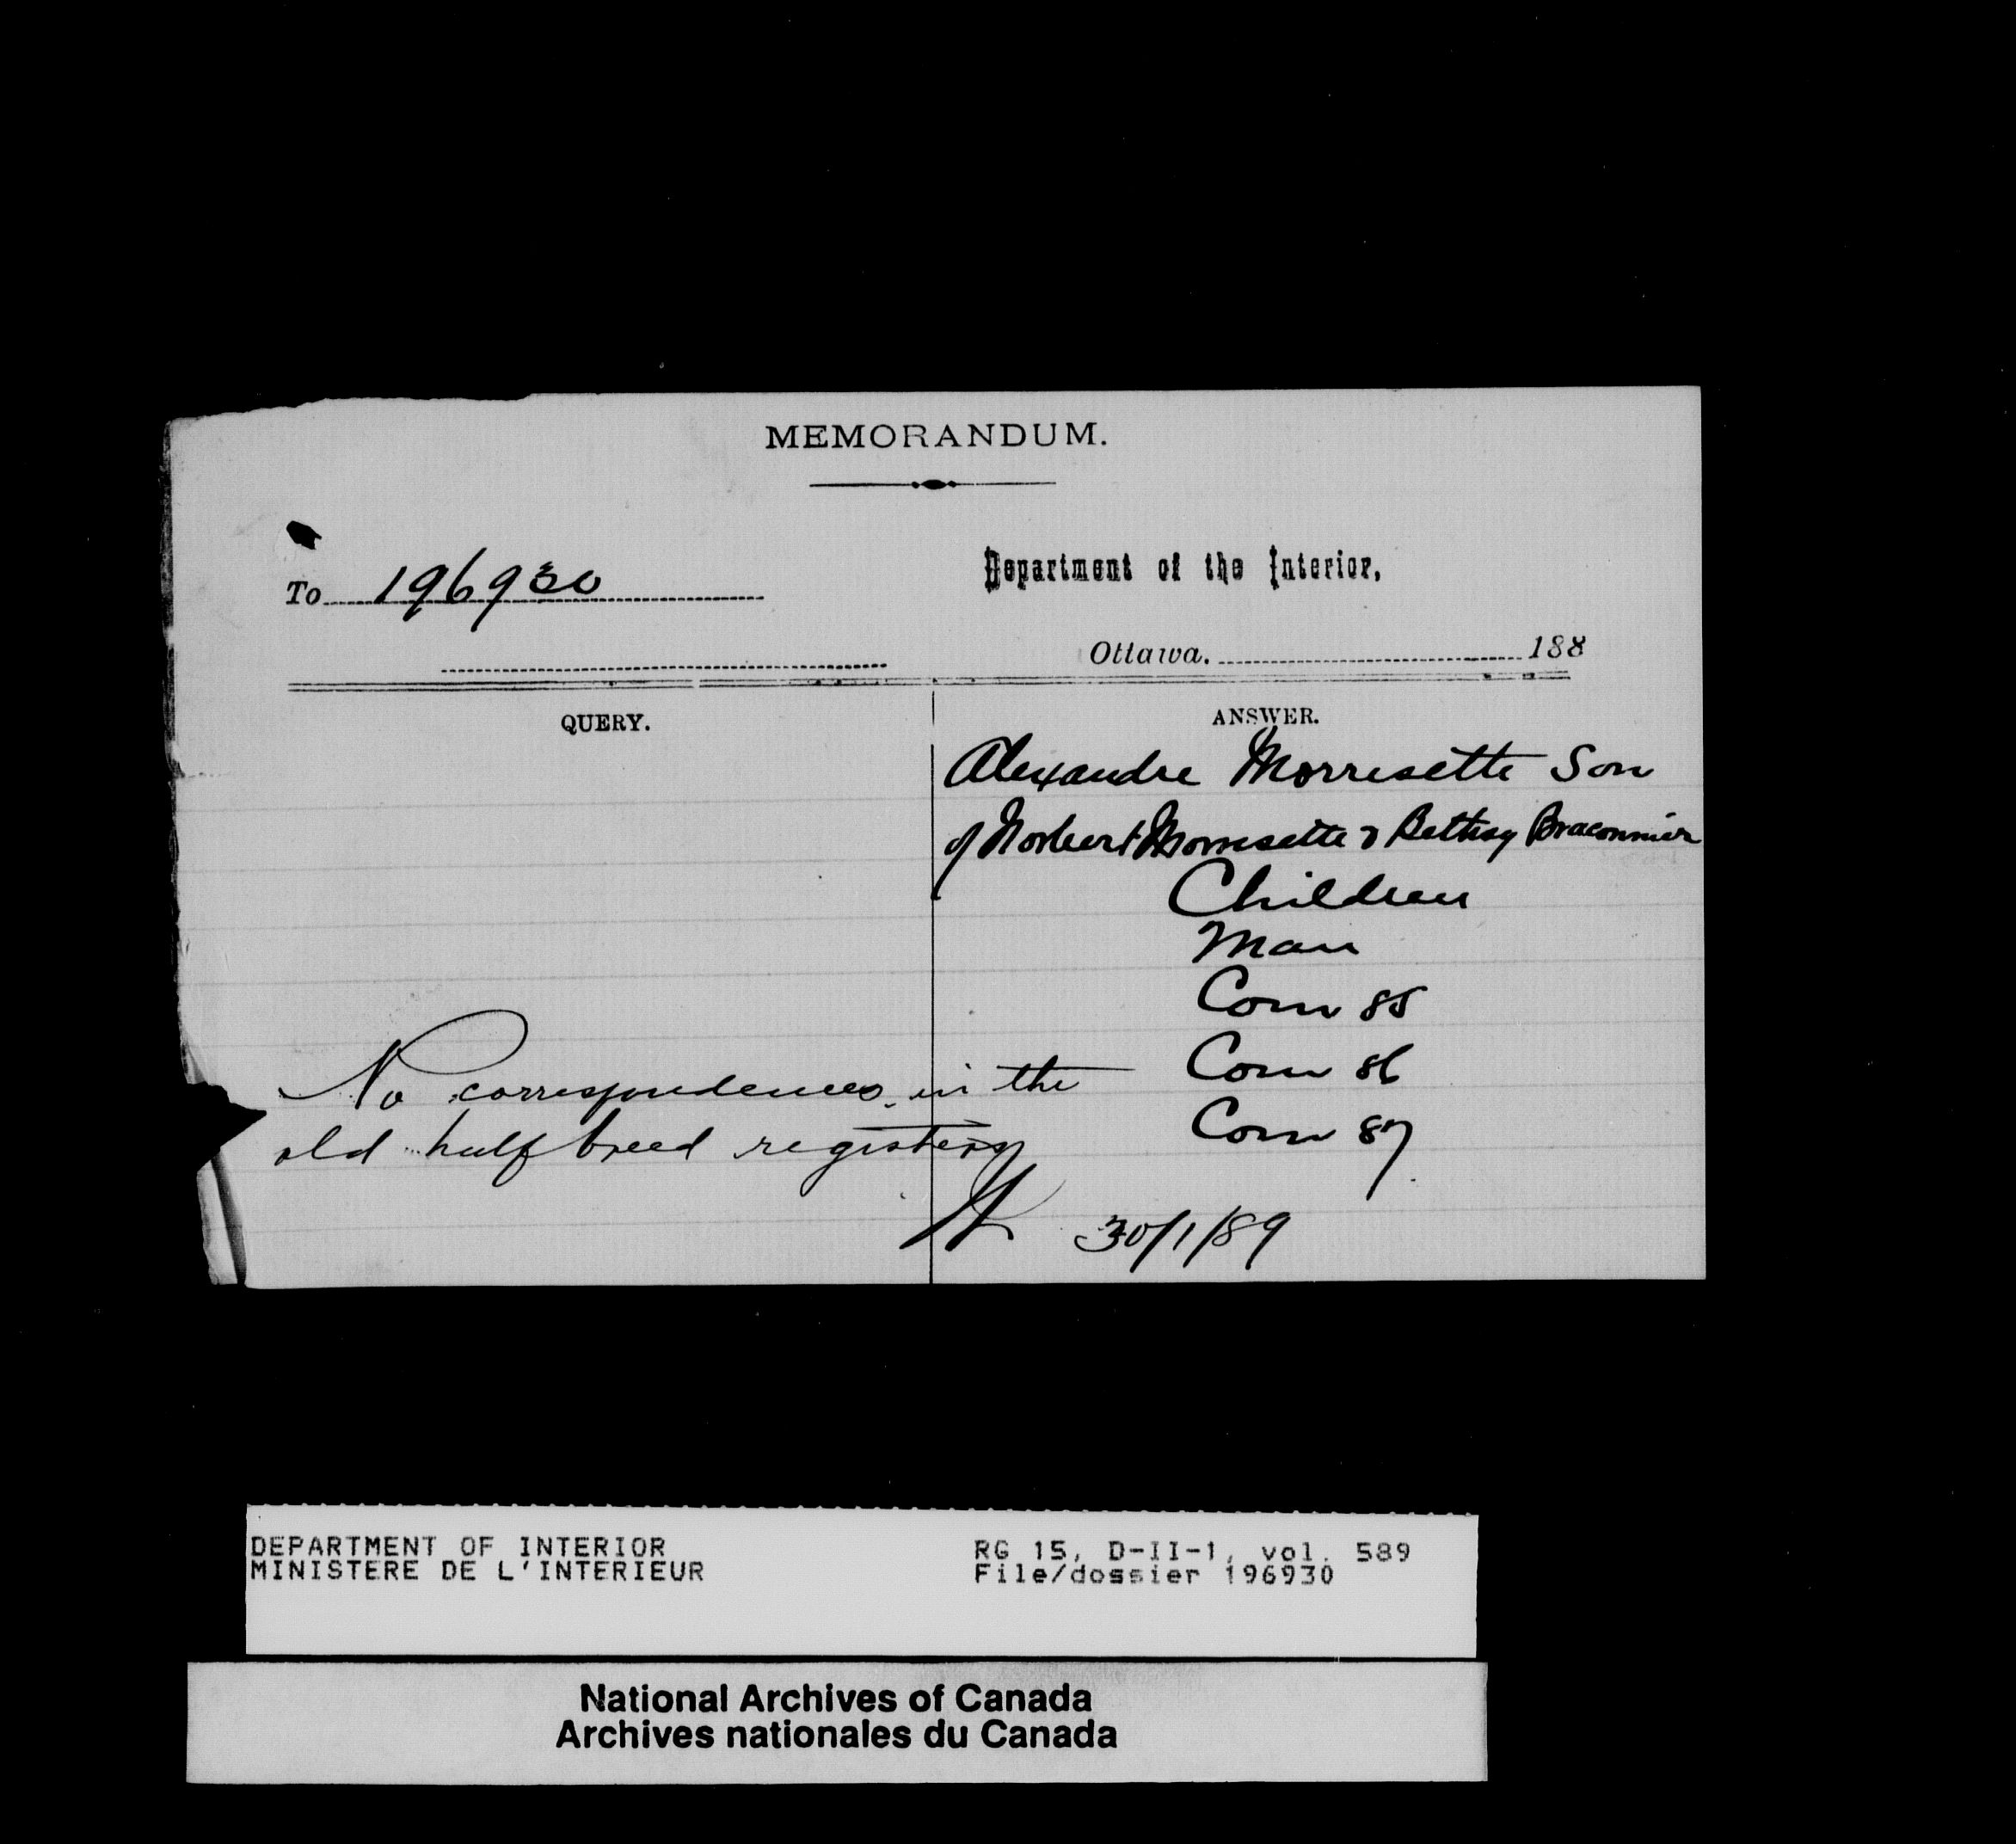 MEMORANDUM.
To 196930
Department of the Interior,
Ottawa. 188
QUERY.
ANSWER.
Alexandre Morrisette Son
of Norbert Morrisette & Bethsy Braconnier
Children
Man
Com 85
Com 86
Com 87
No correspondence in the
old half breed registers
30/1/89
DEPARTMENT OF INTERIOR
MINISTERE DE L'INTERIEUR
RG 15, D-II-1, vol. 589
File/dossier 196930
National Archives of Canada
Archives nationales du Canada